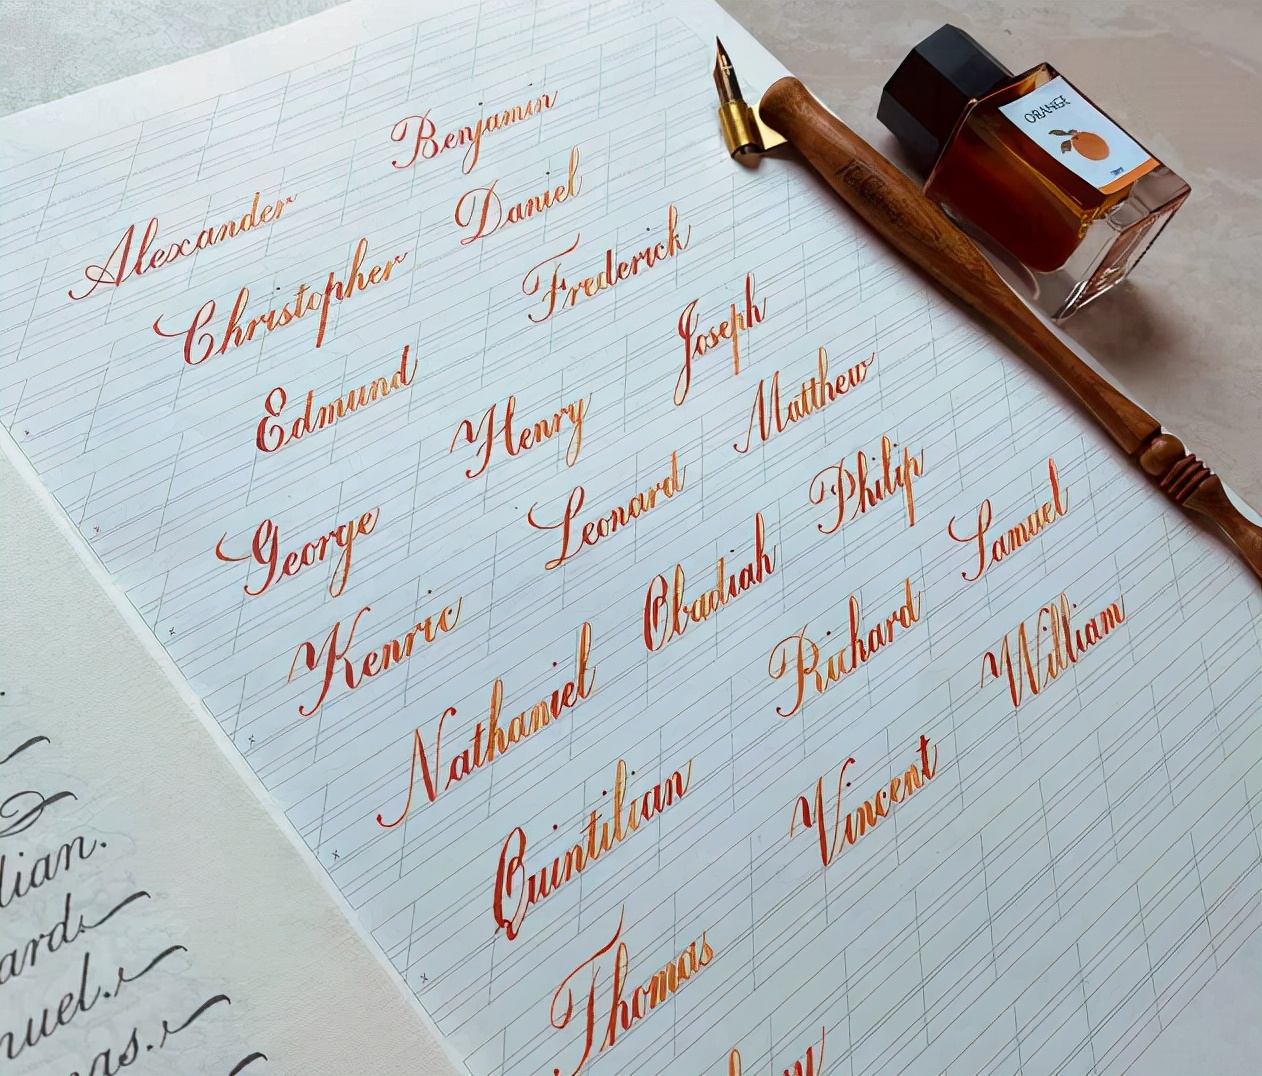 Alexander Benjamin
Christopher Daniel
Edmund Frederick
George Henry Joseph
Kenric Leonard Matthew
Nathaniel Obadiah Philip
Quintilian Richard Samuel
Thomas Vincent William
ORANGE
lian.
ard.
nuel.
as.